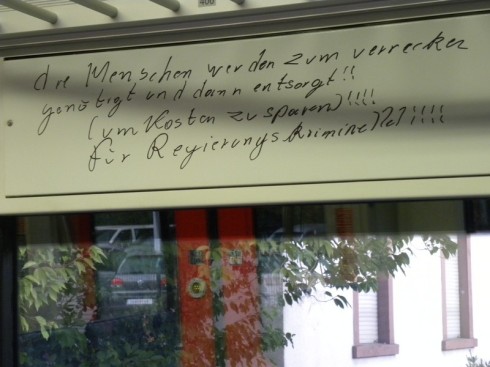 400
die Menschen werden zum verrecken
genötigt und dann entsorgt!!
(um Kosten zu sparen)!!!!
für Regierungskriminelle!!!!